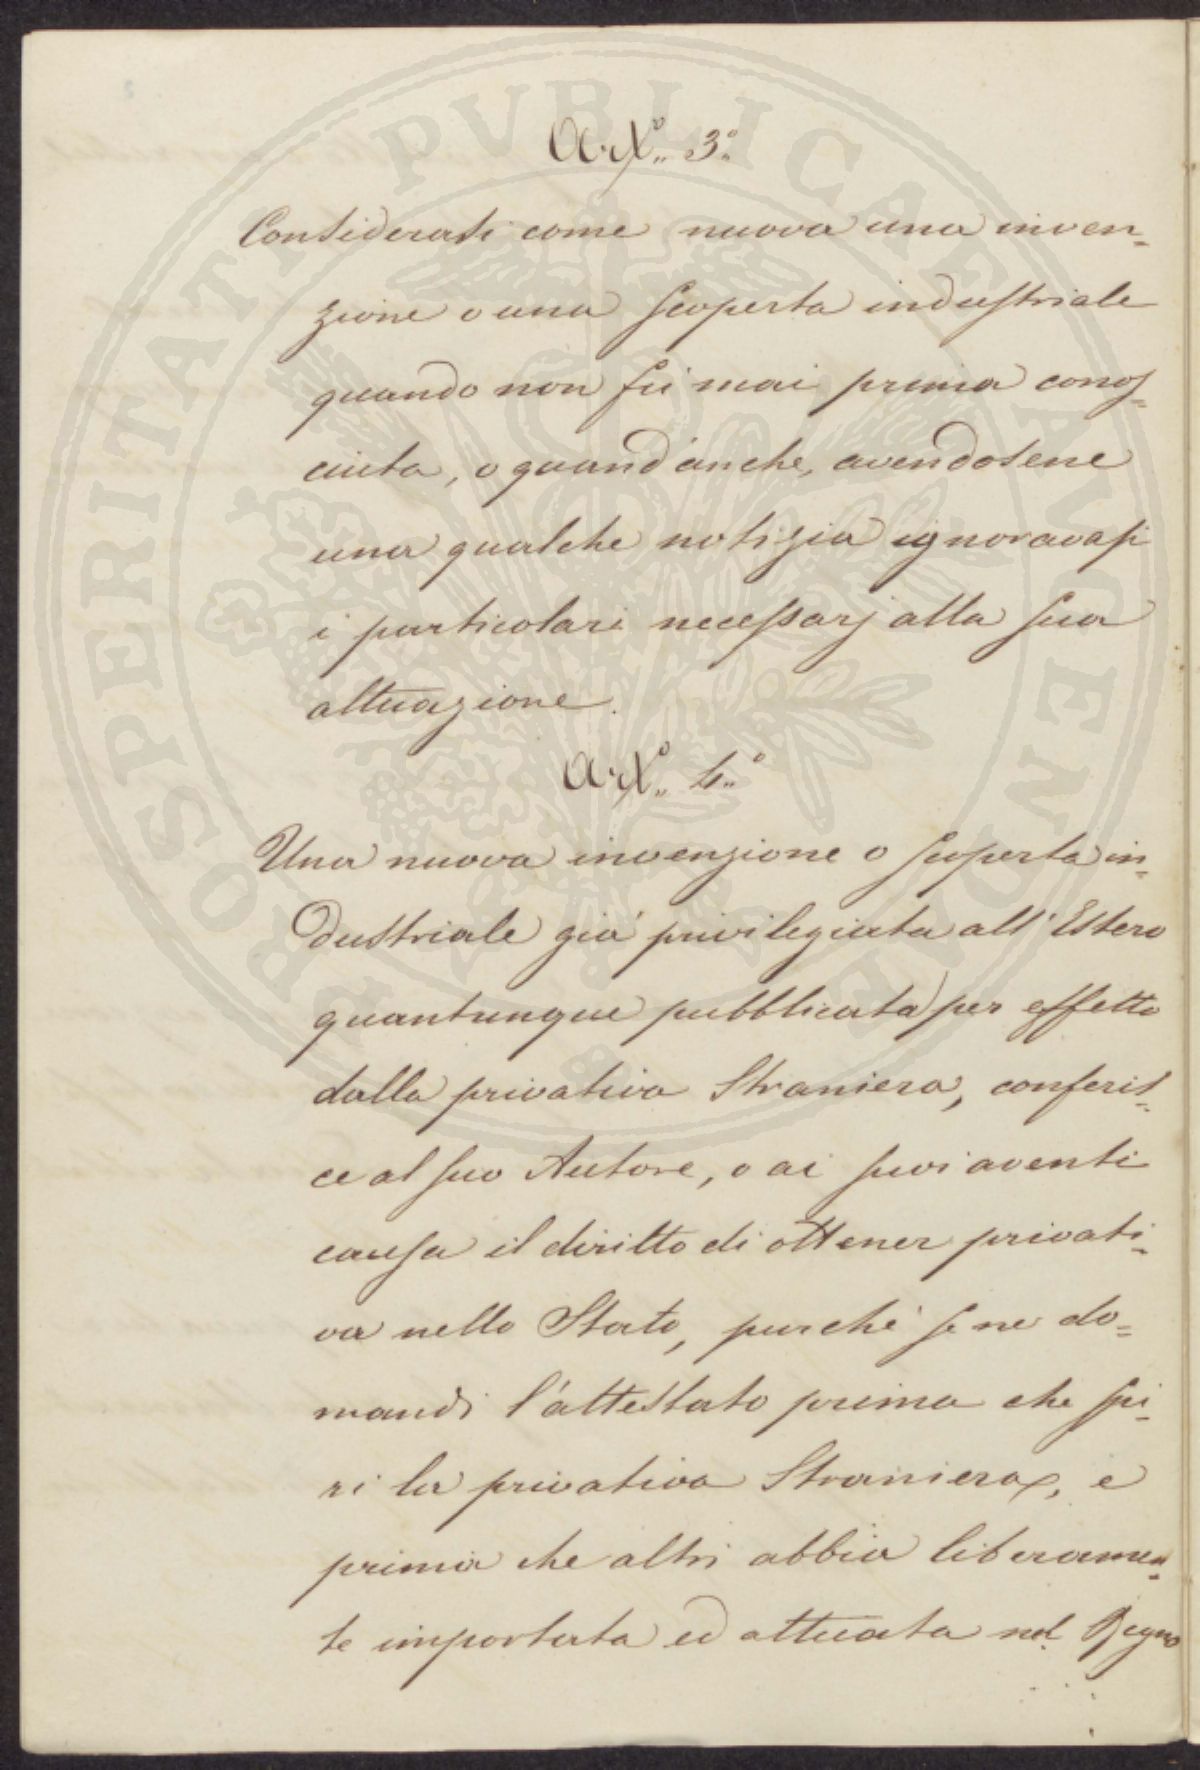 PROSPERITATI PUBLICAE AUGENDAE
Art.º 3.º
Considerasi come nuova una inven=
zione o una scoperta industriale
quando non fu mai prima conos=
ciuta, o quand'anche, avendosene
una qualche notizia ignoravasi
i particolari necessarj alla sua
attuazione.
Art.º 4.º
Una nuova invenzione o scoperta in=
dustriale già privilegiata all'Estero
quantunque pubblicata per effetto
dalla privativa Straniera, conferis=
ce al suo Autore, o ai suoi aventi
causa il diritto di ottener privati=
va nello Stato, purchè se ne do=
mandi l'attestato prima che spi=
ri la privativa Straniera, e
prima che altri abbia liberamen=
te importata ed attuata nel Regno